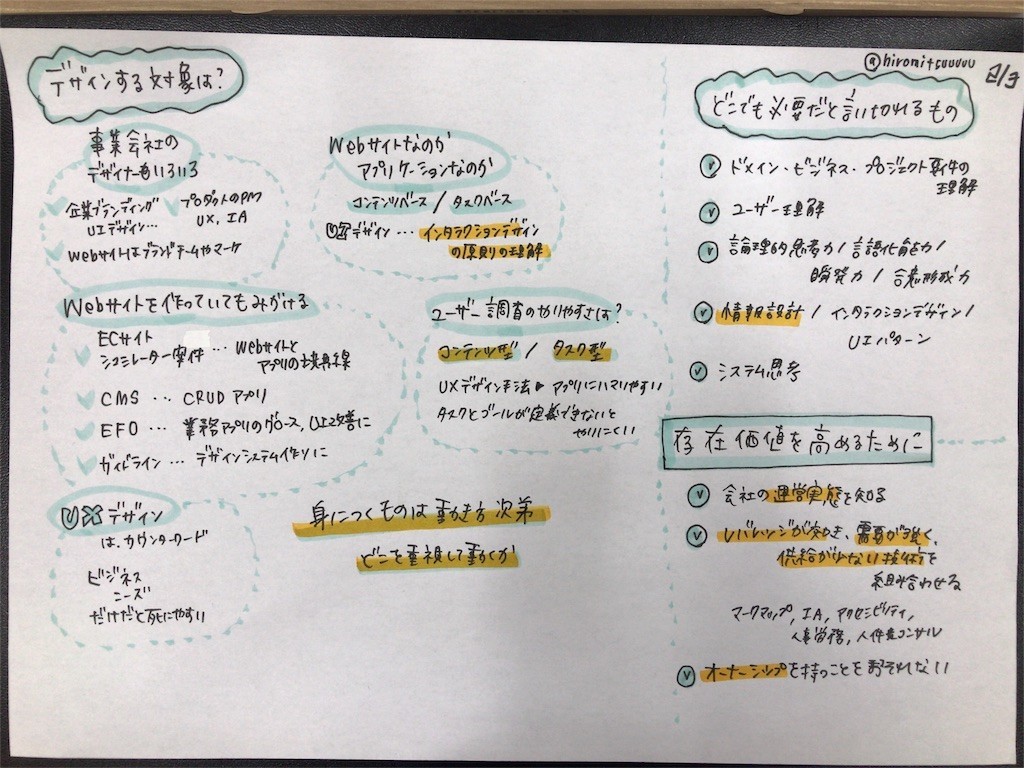 @hiromitsuuuuu
2/3
デザインする対象は?
事業会社の
デザイナーもいろいろ
企業ブランディング
UIデザイン…
プロダクトのPM
UX, IA
Webサイトはブランドチームやマーケ
Webサイトなのか
アプリケーションなのか
コンテンツベース / タスクベース
デザイン … インタラクションデザイン
の原則の理解
Webサイトを作っていてもみがける
ECサイト
シミュレーター案件 … Webサイトと
アプリの境界線
CMS … CRUDアプリ
EFO … 業務アプリのグロース, UI改善に
ガイドライン … デザインシステム作りに
ユーザー調査のやりやすさは?
コンテンツ型 / タスク型
UXデザイン手法 ▶ アプリにハマりやすい
タスクとゴールが定義できないと
やりにくい
デザイン
は、カウンターワード
ビジネス
ニーズ
だけだと死にやすい
身につくものは動き方次第
どこを重視して動くか
どこでも必要だと言い切れるもの
ドメイン・ビジネス・プロジェクト要件の
理解
ユーザー理解
論理的思考力 / 言語化能力 /
瞬発力 / 合意形成力
情報設計 / インタラクションデザイン /
UIパターン
システム思考
存在価値を高めるために
会社の運営実態を知る
レバレッジが効き、需要が強く、
供給が少ない技術を
組み合わせる
マークアップ, IA, アクセシビリティ,
人事労務, 人件費コンサル
オーナーシップを持つことをおそれない